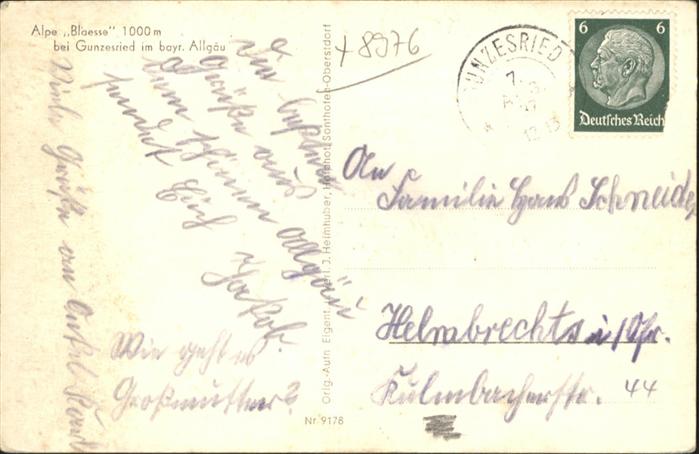 Alpe „Blaesse" 1000 m
bei Gunzesried im bayr. Allgäu
+ 8976
GUNZESRIED
7.
12-13
6 6
Deutsches Reich
Die besten
Grüße aus
dem schönen Allgäu
sendet Euch
Jakob.
Viele Grüße an Onkel Karl
Wie geht es
Großmutter?
Orig.-Aufn. Eigent. J. Heimhuber, Hofphot. Sonthofen-Oberstdorf
Nr 9178
An
Familie Hans Schneider
Helmbrechts i/Ofr.
Kulmbacherstr. 44